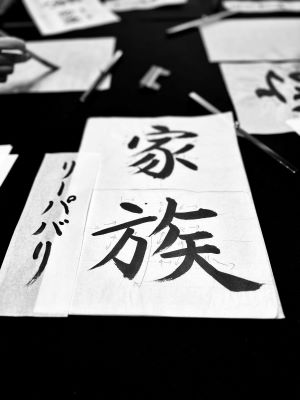 家族
リーパバリ